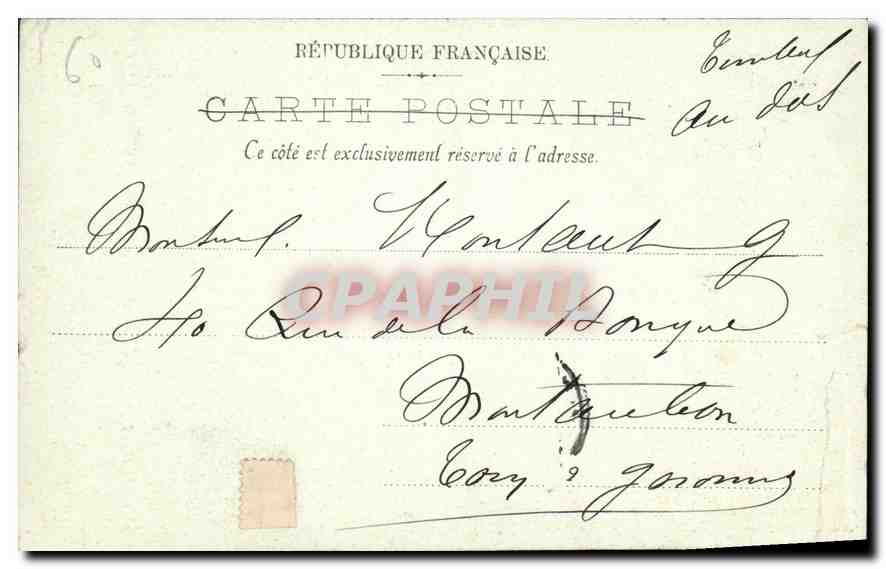 60
RÉPUBLIQUE FRANÇAISE
CARTE POSTALE
Ce côté est exclusivement réservé à l'adresse.
Timbre
au dos
Montaut
CPAPHIL
40 Rue de la Banque
Montauban
Garonne